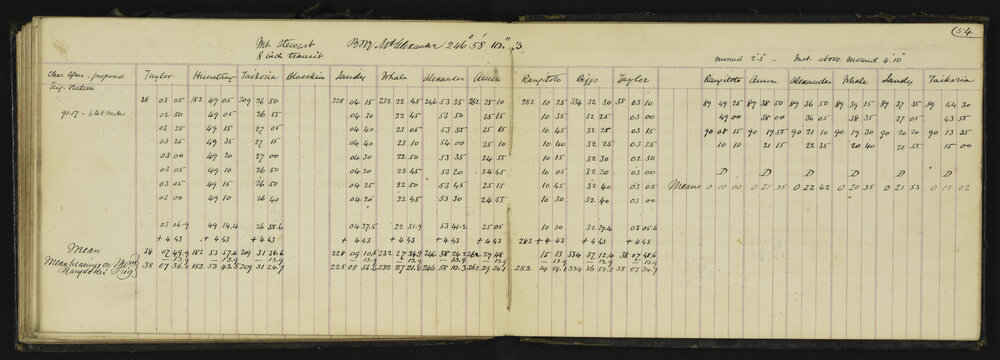 54
Mt. Stewart Bng Mt Alexander 246° 58' 10".3
8 inch transit mound 2'5" - Inst. above Mound 4'10"
Clear after - proposed Taylor Taikoria Blueskin Sandy Whale Alexander Amon Rangitoto Biggs Taylor Rangitoto Amon Alexander Whale Sandy Taikoria
Trig. Station
38 03 05 182 49 05 209 26 50 228 04 15 232 22 45 246 53 35 262 25 10 282 10 25 334 32 30 38 03 10 89 49 25 89 38 50 89 36 50 89 39 15 89 37 35 89 44 30
02 50 49 05 26 55 04 30 22 45 53 50 25 15 10 35 32 40 03 00 49 00 38 00 36 05 38 35 37 05 43 55
03 25 49 15 27 05 04 40 23 05 53 55 25 15 10 45 32 25 03 15 90 08 15 90 19 55 90 21 10 90 19 30 90 20 20 90 13 35
03 25 49 35 27 15 04 40 23 10 54 00 25 10 10 40 32 25 03 25 10 10 21 15 22 35 20 40 21 55 15 00
03 00 49 20 27 00 04 30 22 50 53 35 24 55 10 15 32 30 02 50 D D D D D
03 05 49 10 26 50 04 20 22 45 53 20 24 45 10 55 32 20 03 00
03 05 49 15 26 50 04 25 22 50 53 45 25 15 10 45 32 40 03 05 Means 0 10 00 0 21 35 0 22 42 0 20 35 0 21 53 0 15 02
03 00 49 10 26 40 04 20 22 45 53 30 24 55 10 35 32 40 03 00
03 06.9 49 14.4 26 55.6 04 27.5 22 51.9 53 41.2 25 05 10 30 32 29.4 03 05.6
+ 4 43 + 4 43 + 4 43 + 4 43 + 4 43 + 4 43 + 4 43 282 + 4 43 + 4 43 + 4 43
Mean 38 07 49.9 182 53 57.4 209 31 38.6 228 09 10.5 232 27 34.9 246 58 24.2 262 29 48 15 13 334 37 12.4 38 07 48.6
- 13.9 - 13.9 - 13.9 - 13.9 - 13.9 - 13.9
Mean bearings on
Trig 38 07 36.0 182 53 43.5 209 31 24.7 228 08 56.6 232 27 21.0 246 58 10.3 262 29 34.1 282 14 59.1 334 36 58.5 38 07 34.7